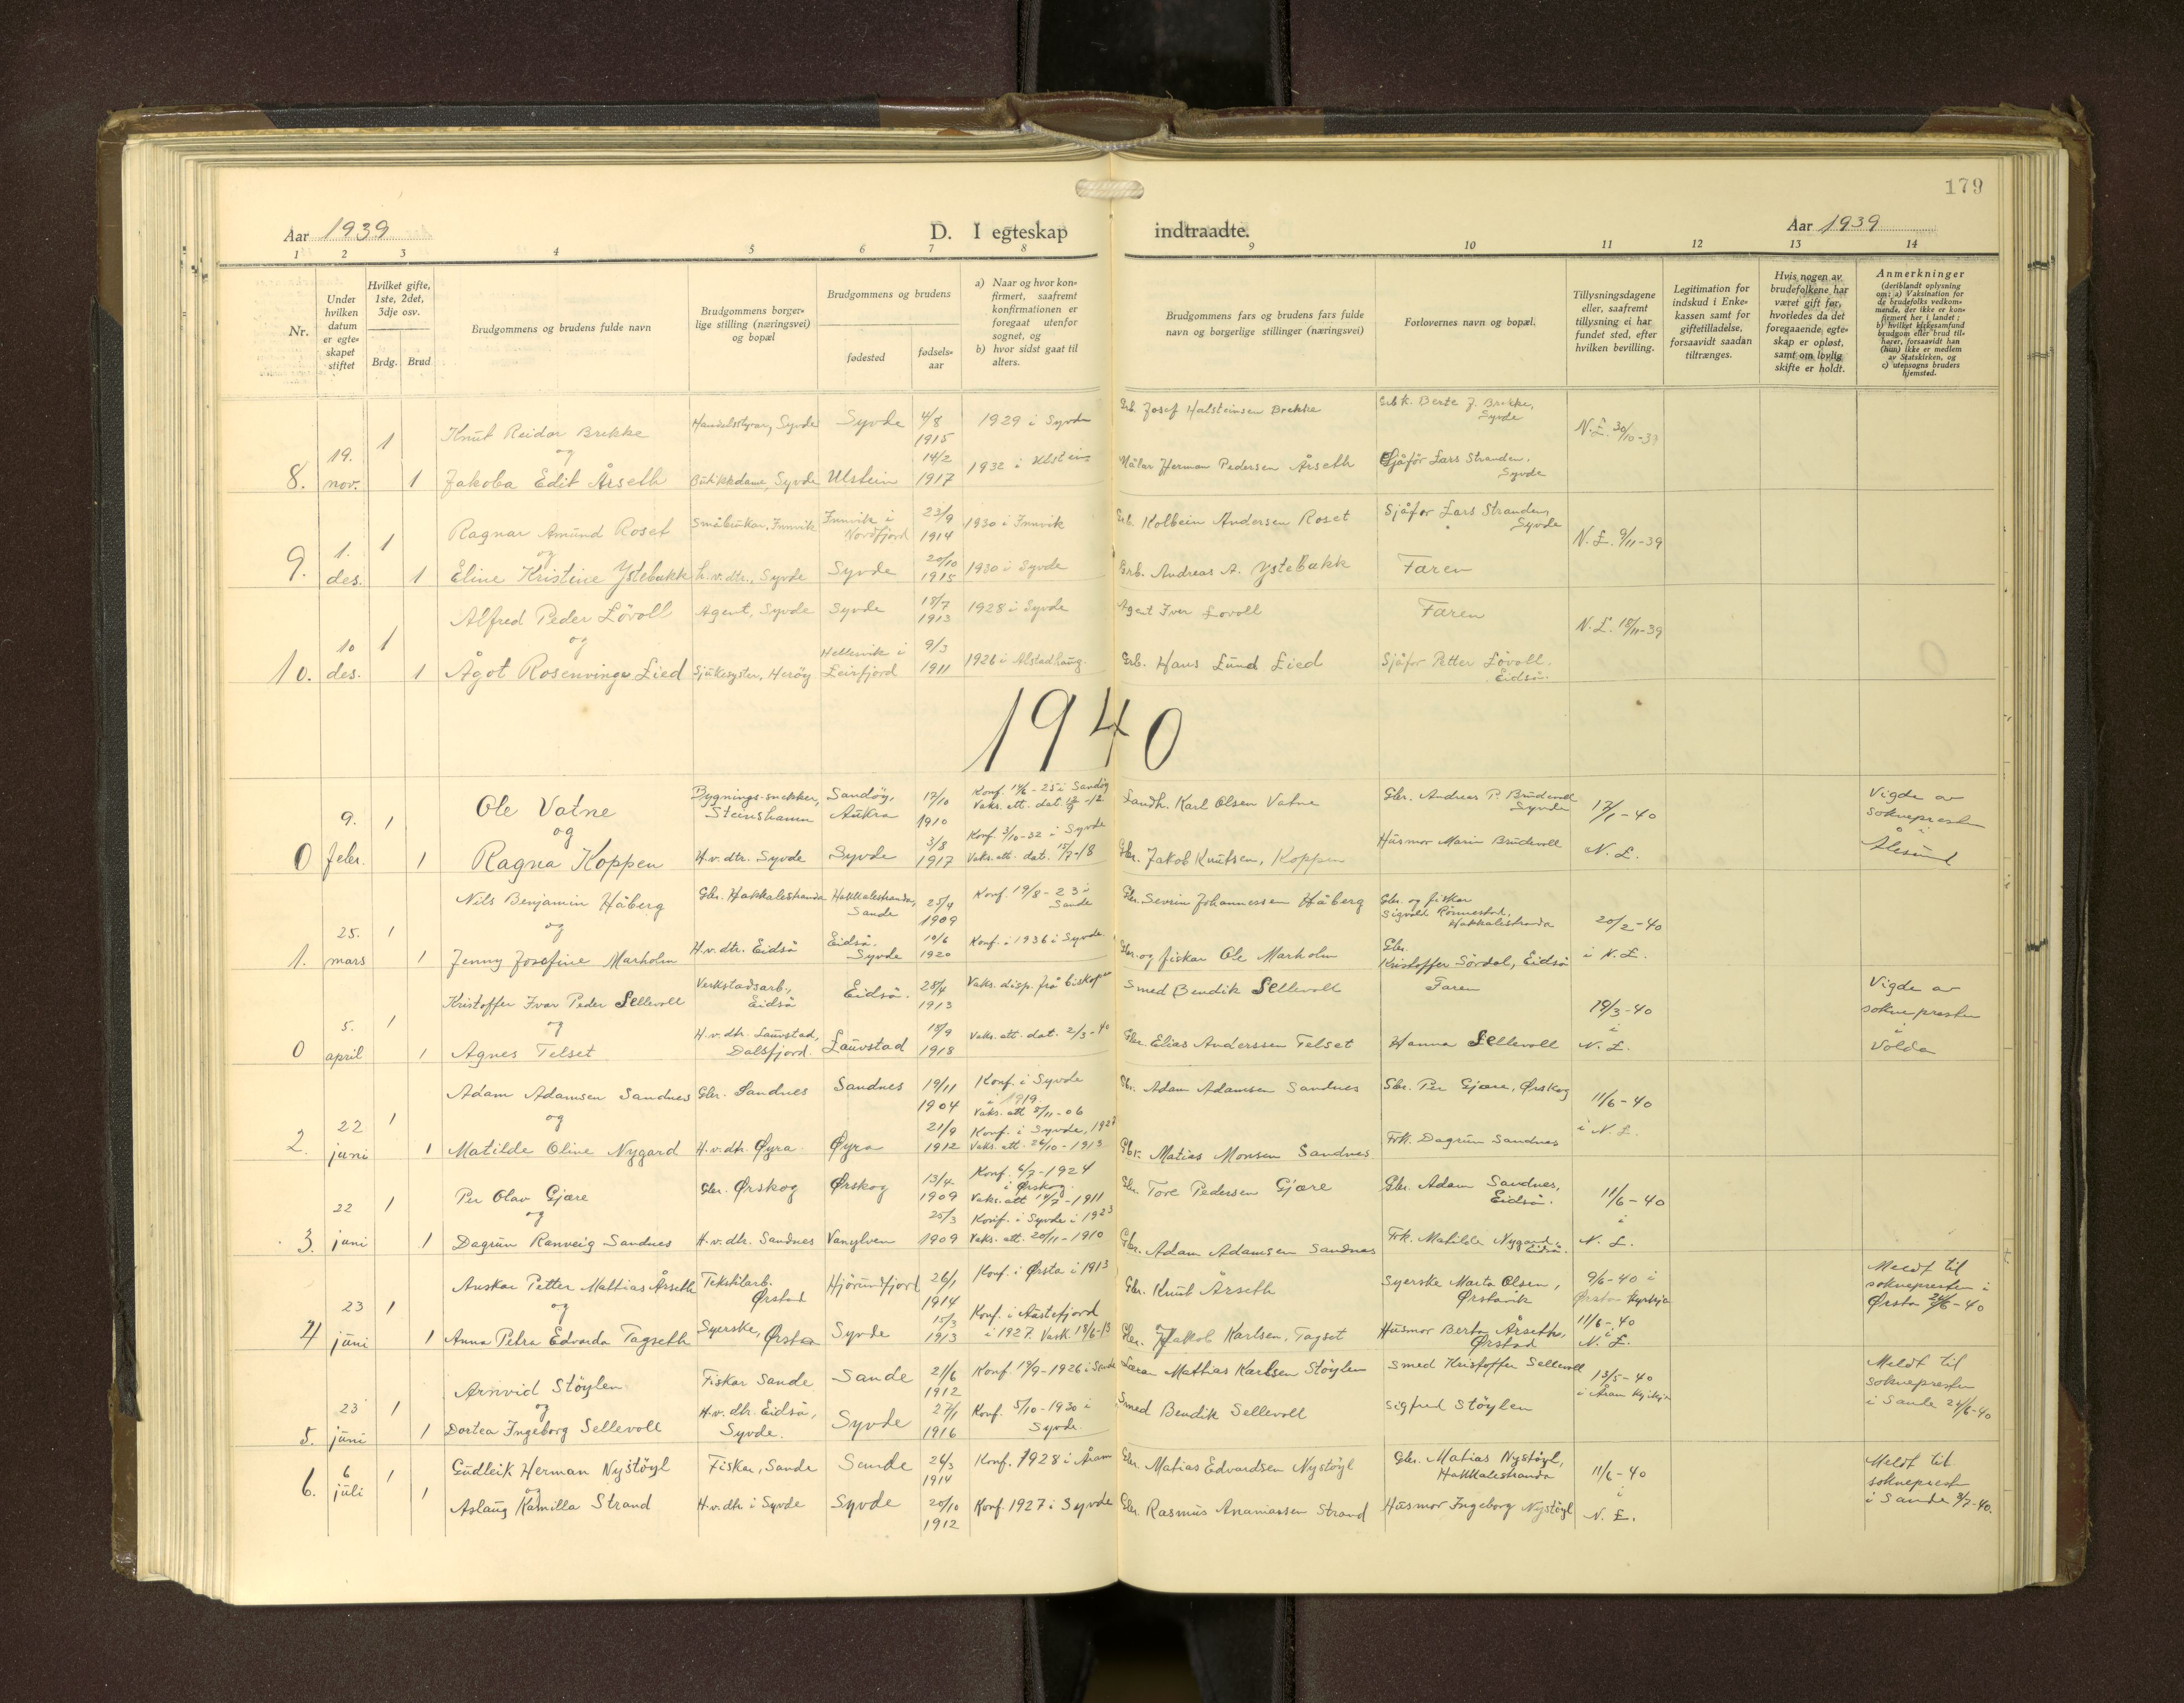 179
Aar 1939
D. I egteskap indtraadte.
Aar 1939
1 2 3 4 5 6 7 8 9 10 11 12 13 14
Nr.
Under
hvilken
datum
er egte-
skapet
stiftet
Hvilket gifte,
1ste, 2det,
3dje osv.
Brdg.
Brud
Brudgommens og brudens fulde navn
Brudgommens borger-
lige stilling (næringsvei)
og bopæl
Brudgommens og brudens
fødested
fødsels-
aar
a) Naar og hvor kon-
firmert, saafremt
konfirmationen er
foregaat utenfor
sognet, og
b) hvor sidst gaat til
alters.
Brudgommens fars og brudens fars fulde
navn og borgerlige stillinger (næringsvei)
Forlovernes navn og bopæl.
Tillysningsdagene
eller, saafremt
tillysning ei har
fundet sted, efter
hvilken bevilling.
Legitimation for
indskud i Enke-
kassen samt for
giftetilladelse,
forsaavidt saadan
tiltrænges.
Hvis nogen av
brudefolkene har
været gift før,
hvorledes da det
foregaaende egte-
skap er opløst,
samt om lovlig
skifte er holdt.
Anmerkninger
(deriblandt oplysning
om: a) Vaksination for
de brudefolks vedkom-
mende, der ikke er kon-
firmert her i landet;
b) hvilket kirkesamfund
brudgom eller brud til-
hører, forsaavidt han
(hun) ikke er medlem
av Statskirken, og
c) utensogns bruders
hjemsted.
8.
19.
nov.
1
1
Knut Reidar Brekke
og
Jakoba Edit Årseth
Handelsstyrar, Syvde
Butikkdame, Syvde
Syvde
Ulstein
4/8
1915
14/2
1917
1929 i Syvde
1932 i Ulstein
Grb. Josef Halsteinsen Brekke
Målar Herman Pedersen Årseth
Grbk. Berte J. Brekke,
Syvde
Sjåfør Lars Stranden,
Syvde
N.L. 30/10-39
9.
1.
des.
1
1
Ragnar Amund Roset
og
Eline Kristine Ystebakk
Småbrukar, Innvik
h.v.dtr., Syvde
Innvik i
Nordfjord
Syvde
23/9
1914
20/10
1915
1930 i Innvik
1930 i Syvde
Grb. Kolbein Andersen Roset
Grb. Andreas A. Ystebakk
Sjåfør Lars Stranden,
Syvde
Faren
N.L. 9/11-39
10.
10
des.
1
1
Alfred Peder Løvoll
og
Ågot Rosenvinge Lied
Agent, Syvde
Sjukesyster, Herøy
Syvde
Hellesvik i
Leirfjord
18/7
1913
9/3
1911
1928 i Syvde
1926 i Alstadhaug.
Agent Iver Løvoll
Grb. Hans Lund Lied
Faren
Sjåfør Petter Løvoll.
Eidså.
N.L. 18/11-39
1940
0
9.
febr.
1
1
Ole Vatne
og
Ragna Koppen
Bygnings-snekker,
Steinshamn
H.v.dtr. Syvde
Sandøy,
Aukra
Syvde
17/10
1910
3/8
1917
Konf. 14/6-25 i Sandøy
Konf. 3/10-32 i Syvde
Vaks. att. dat. 15/7-18
Landh. Karl Olsen Vatne
Gbr. Jakob Knutsen, Koppen
Gbr. Andreas P. Brudevoll
Syvde
Husmor Marin Brudevoll
17/1-40
N.L.
Vigde av
soknepresten
i
Ålesund
1.
25.
mars
1
1
Nils Benjamin Håberg
og
Jenny Josefine Marholm
Gbr. Hakkalestranda
H.v.dtr. Eidså
Hakkalestranda,
Sande
Eidså.
Syvde
25/4
1909
10/6
1920
Konf. 19/8-23 i
Sande
Konf. i 1936 i Syvde
Gbr. Sevrin Johannessen Håberg
Gbr. og fiskar Ole Marholm
Gbr. og fiskar
Sigvald Rønnestad,
Hakkalestranda
Gbr.
Kristoffer Sørdal, Eidså
20/2-40
i N.L.
0
5.
april
1
1
Kristoffer Ivar Peder Sellevoll
og
Agnes Telset
Verkstadsarb.,
Eidså
H.v.dtr. Lauvstad,
Dalsfjord.
Eidså.
Lauvstad
28/4
1913
18/9
1918
Vaks. disp. frå biskopen
Vaks. att. dat. 2/3-40
Smed Bendik Sellevoll
Gbr. Elias Anderssen Telset
Faren
Hanna Sellevoll
19/3-40
i
N.L.
Vigde av
soknepresten
i
Volda
2.
22
juni
1
1
Adam Adamsen Sandnes
og
Matilde Oline Nygard
Gbr. Sandnes
H.v.dtr. Øyra
Sandnes
Øyra
19/11
1904
21/9
1912
Konf. i Syvde
i 1919.
Vaks. att 8/11-06
Konf. i Syvde, 1927
Vaks. att. 26/10-1913
Gbr. Adam Adamsen Sandnes
Gbr. Matias Monsen Sandnes.
Gbr. Per Gjære, Ørskog
Frk. Dagrun Sandnes
11/6-40
i N.L.
3.
22
juni
1
1
Per Olav Gjære
og
Dagrun Ranveig Sandnes
Gbr. Ørskog
H.v.dtr. Sandnes
Ørskog
Vanylven
13/4
1909
25/3
1909
Konf. 6/7-1924
i Ørskog.
Vaks. att 14/7-1911
Konf. i Syvde i 1923
Vaks. att. 20/11-1910
Gbr. Tore Pedersen Gjære
Gbr. Adam Adamsen Sandnes
Gbr. Adam Sandnes,
Eidså.
Frk. Matilde Nygard,
Eidså.
11/6-40
i
N.L.
4
23
juni
1
1
Anskar Petter Mathias Årseth
og
Anna Petra Edvarda Tagseth
Tekstilarb.
Ørstad
Syerske, Ørsta
Hjørundfjord
Syvde
26/1
1914
15/3
1913
Konf. i Ørsta i 1913
Konf. i Austefjord
i 1927. Vark. 18/6-13
Gbr. Knut Årseth
Gbr. Jakob Karlsen, Tagset
Syerske Marta Olsen,
Ørstavik
Husmor Berta Årseth,
Ørstad
9/6-40 i
Ørsta kyrkja
11/6-40
i
N.L.
Meldt til
soknepresten i
Ørsta 24/6-40
5.
23
juni
1
1
Arnvid Støylen
og
Dortea Ingeborg Sellevoll
Fiskar Sande
H.v.dtr. Eidså,
Syvde.
Sande
Syvde
21/6
1912
27/1
1916
Konf. 19/9-1926 i Sande
Konf. 5/10-1930 i
Syvde.
Lærar Mathias Karlsen Støylen
Smed Bendik Sellevoll
Smed Kristoffer Sellevoll
Sigfred Støylen
13/5-40
i Åram kyrkje
Meldt til
soknepresten
i Sande 24/6-40
6.
6
juli
1
1
Gudleik Herman Nystøyl
og
Aslaug Kamilla Strand
Fiskar, Sande
H.v.dtr i Syvde
Sande
Syvde
26/3
1914
20/10
1912
Konf. 1928 i Åram
Konf. 1927 i Syvde
Gbr. Matias Edvardsen Nystøyl
Gbr. Rasmus Ananiassen Strand
Gbr. Matias Nystøyl,
Hakkalestranda
Husmor Ingeborg Nystøyl
11/6-40
i
N.L.
Meldt til
sokneprest
i Sande 8/7-40.